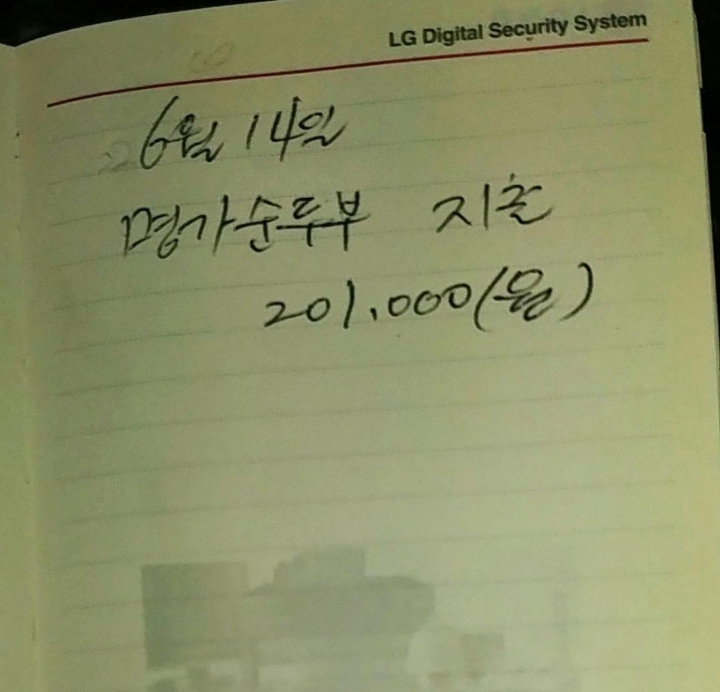 LG Digital Security System
6월 14일
명가순두부 지출
201,000(원)